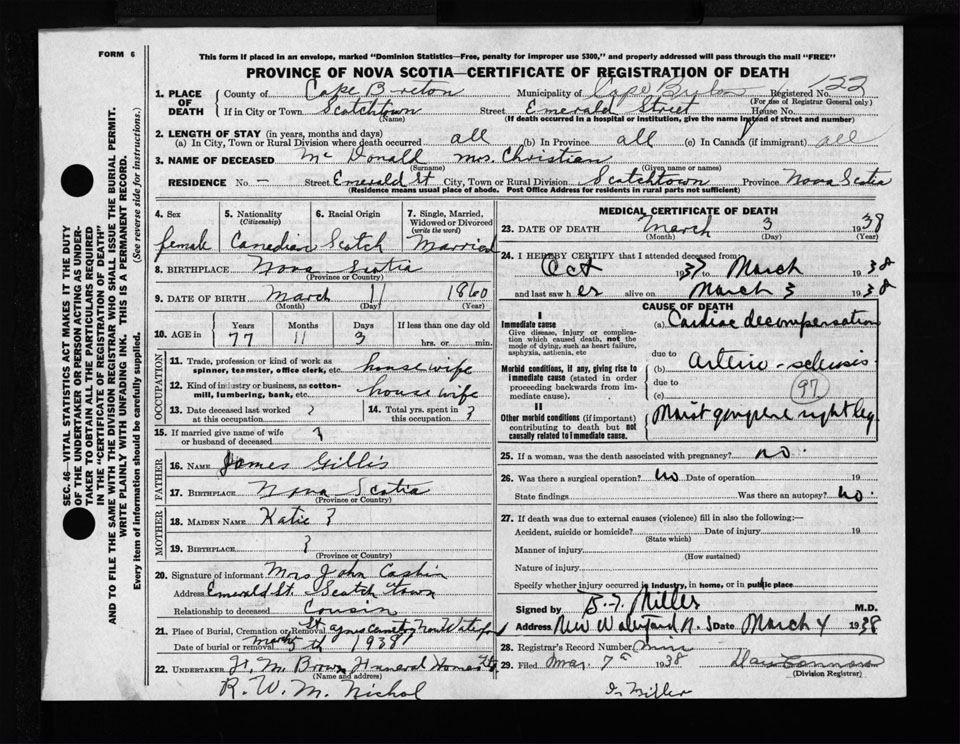 FORM 6
This form if placed in an envelope, marked "Dominion Statistics—Free, penalty for improper use $300," and properly addressed will pass through the mail "FREE"
PROVINCE OF NOVA SCOTIA—CERTIFICATE OF REGISTRATION OF DEATH
1. PLACE OF DEATH County of Cape Breton Municipality of Cape Breton Registered No. 122
(For use of Registrar General only)
If in City or Town Scotchtown Street Emerald Street House No.
(Name) (If death occurred in a hospital or institution, give the name instead of street and number)
2. LENGTH OF STAY (in years, months and days)
(a) In City, Town or Rural Division where death occurred all (b) In Province all (c) In Canada (if immigrant) all
3. NAME OF DECEASED McDonald Mrs. Christian
(Surname) (Given name or names)
RESIDENCE No. — Street Emerald St City, Town or Rural Division Scotchtown Province Nova Scotia
(Residence means usual place of abode. Post Office Address for residents in rural parts not sufficient)
4. Sex female
5. Nationality (Citizenship) Canadian
6. Racial Origin Scotch
7. Single, Married, Widowed or Divorced (write the word) Married
8. BIRTHPLACE Nova Scotia
(Province or Country)
9. DATE OF BIRTH March 11 1860
(Month) (Day) (Year)
10. AGE in Years 77 Months 11 Days 3 If less than one day old hrs. or min.
OCCUPATION
11. Trade, profession or kind of work as spinner, teamster, office clerk, etc. housewife
12. Kind of industry or business, as cotton-mill, lumbering, bank, etc. housewife
13. Date deceased last worked at this occupation ?
14. Total yrs. spent in this occupation ?
15. If married give name of wife or husband of deceased ?
FATHER
16. NAME James Gillis
17. BIRTHPLACE Nova Scotia
(Province or Country)
MOTHER
18. MAIDEN NAME Katie ?
19. BIRTHPLACE ?
(Province or Country)
20. Signature of informant Mrs John Cashin
Address Emerald St. Scotchtown
Relationship to deceased Cousin
21. Place of Burial, Cremation or Removal St Agnes Cemetery New Waterford
Date of burial or removal March 5th 1938
22. UNDERTAKER Funeral Home
(Name and address)
R. W. M. Nichol
MEDICAL CERTIFICATE OF DEATH
23. DATE OF DEATH March 3 1938
(Month) (Day) (Year)
24. I HEREBY CERTIFY that I attended deceased from:
Oct 1937 to March 1938
and last saw her alive on March 3 1938
CAUSE OF DEATH
I
Immediate cause
Give disease, injury or complication which caused death, not the mode of dying, such as heart failure, asphyxia, asthenia, etc
(a) Cardiac decompensation
due to
Morbid conditions, if any, giving rise to immediate cause (stated in order proceeding backwards from immediate cause).
(b) Arterio-sclerosis
due to
(c) 97
II
Other morbid conditions (if important) contributing to death but not causally related to immediate cause.
Moist gangrene right leg
25. If a woman, was the death associated with pregnancy? no.
26. Was there a surgical operation? no Date of operation 19
State findings Was there an autopsy? no.
27. If death was due to external causes (violence) fill in also the following:—
Accident, suicide or homicide? Date of injury 19
(State which)
Manner of injury
(How sustained)
Nature of injury
Specify whether injury occurred in industry, in home, or in public place
Signed by Miller M.D.
Address New Waterford N.S Date March 4 1938
28. Registrar's Record Number Nine
29. Filed Mar. 7th 1938
(Division Registrar)
Miller
SEC. 46—VITAL STATISTICS ACT MAKES IT THE DUTY
OF THE UNDERTAKER OR PERSON ACTING AS UNDER-
TAKER TO OBTAIN ALL THE PARTICULARS REQUIRED
IN THE "CERTIFICATE OF REGISTRATION OF DEATH"
AND TO FILE THE SAME WITH THE DIVISION REGISTRAR WHO SHALL ISSUE THE BURIAL PERMIT.
WRITE PLAINLY WITH UNFADING INK. THIS IS A PERMANENT RECORD.
Every item of information should be carefully supplied. (See reverse side for instructions.)